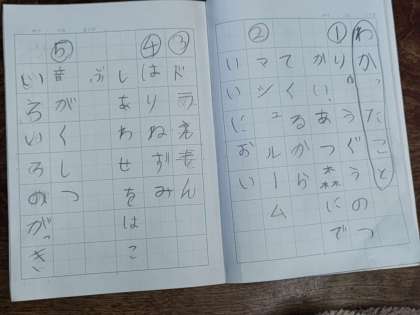 わかったこと
①
りゅうぐうのつ
かい、あつ森にで
てくるから
②
マシュルーム
いいにおい
③
ドラえもん
④
はりねずみ
しあわせをはこ
ぶ
⑤
音がくしつ
いろいろのがっき